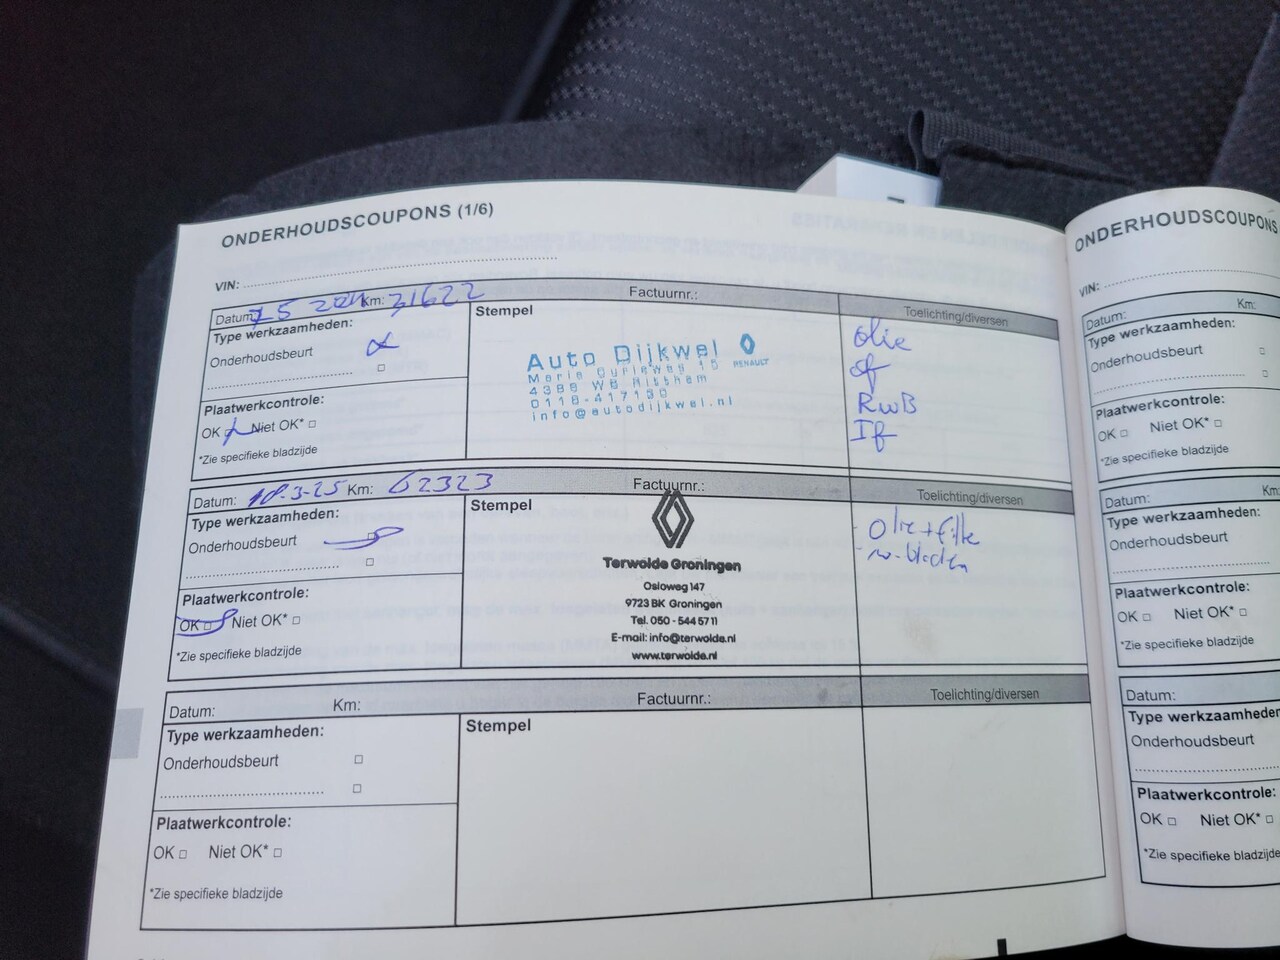 ONDERHOUDSCOUPONS (1/6)
VIN:
Datum: 5 2024 Km: 31622 Factuurnr.: Toelichting/diversen
Type werkzaamheden:
Onderhoudsbeurt
Plaatwerkcontrole:
OK Niet OK*
*Zie specifieke bladzijde
Stempel
Auto Dijkwel
RENAULT
Marie Curieweg 15
4389 WB Ritthem
0118-417130
info@autodijkwel.nl
olie
of
RWB
If
Datum: 18-3-25 Km: 62323 Factuurnr.: Toelichting/diversen
Type werkzaamheden:
Onderhoudsbeurt
Plaatwerkcontrole:
OK Niet OK*
*Zie specifieke bladzijde
Stempel
Terwolde Groningen
Osloweg 147
9723 BK Groningen
Tel. 050 - 544 57 11
E-mail: info@terwolde.nl
www.terwolde.nl
- Olie + filte
- bladen
Datum: Km: Factuurnr.: Toelichting/diversen
Type werkzaamheden:
Onderhoudsbeurt
Plaatwerkcontrole:
OK Niet OK*
*Zie specifieke bladzijde
Stempel
ONDERHOUDSCOUPONS
VIN:
Datum: Km:
Type werkzaamheden:
Onderhoudsbeurt
Plaatwerkcontrole:
OK Niet OK*
*Zie specifieke bladzijde
Datum: Km:
Type werkzaamheden:
Onderhoudsbeurt
Plaatwerkcontrole:
OK Niet OK*
*Zie specifieke bladzijde
Datum:
Type werkzaamheden
Onderhoudsbeurt
Plaatwerkcontrole:
OK Niet OK*
*Zie specifieke bladzijde